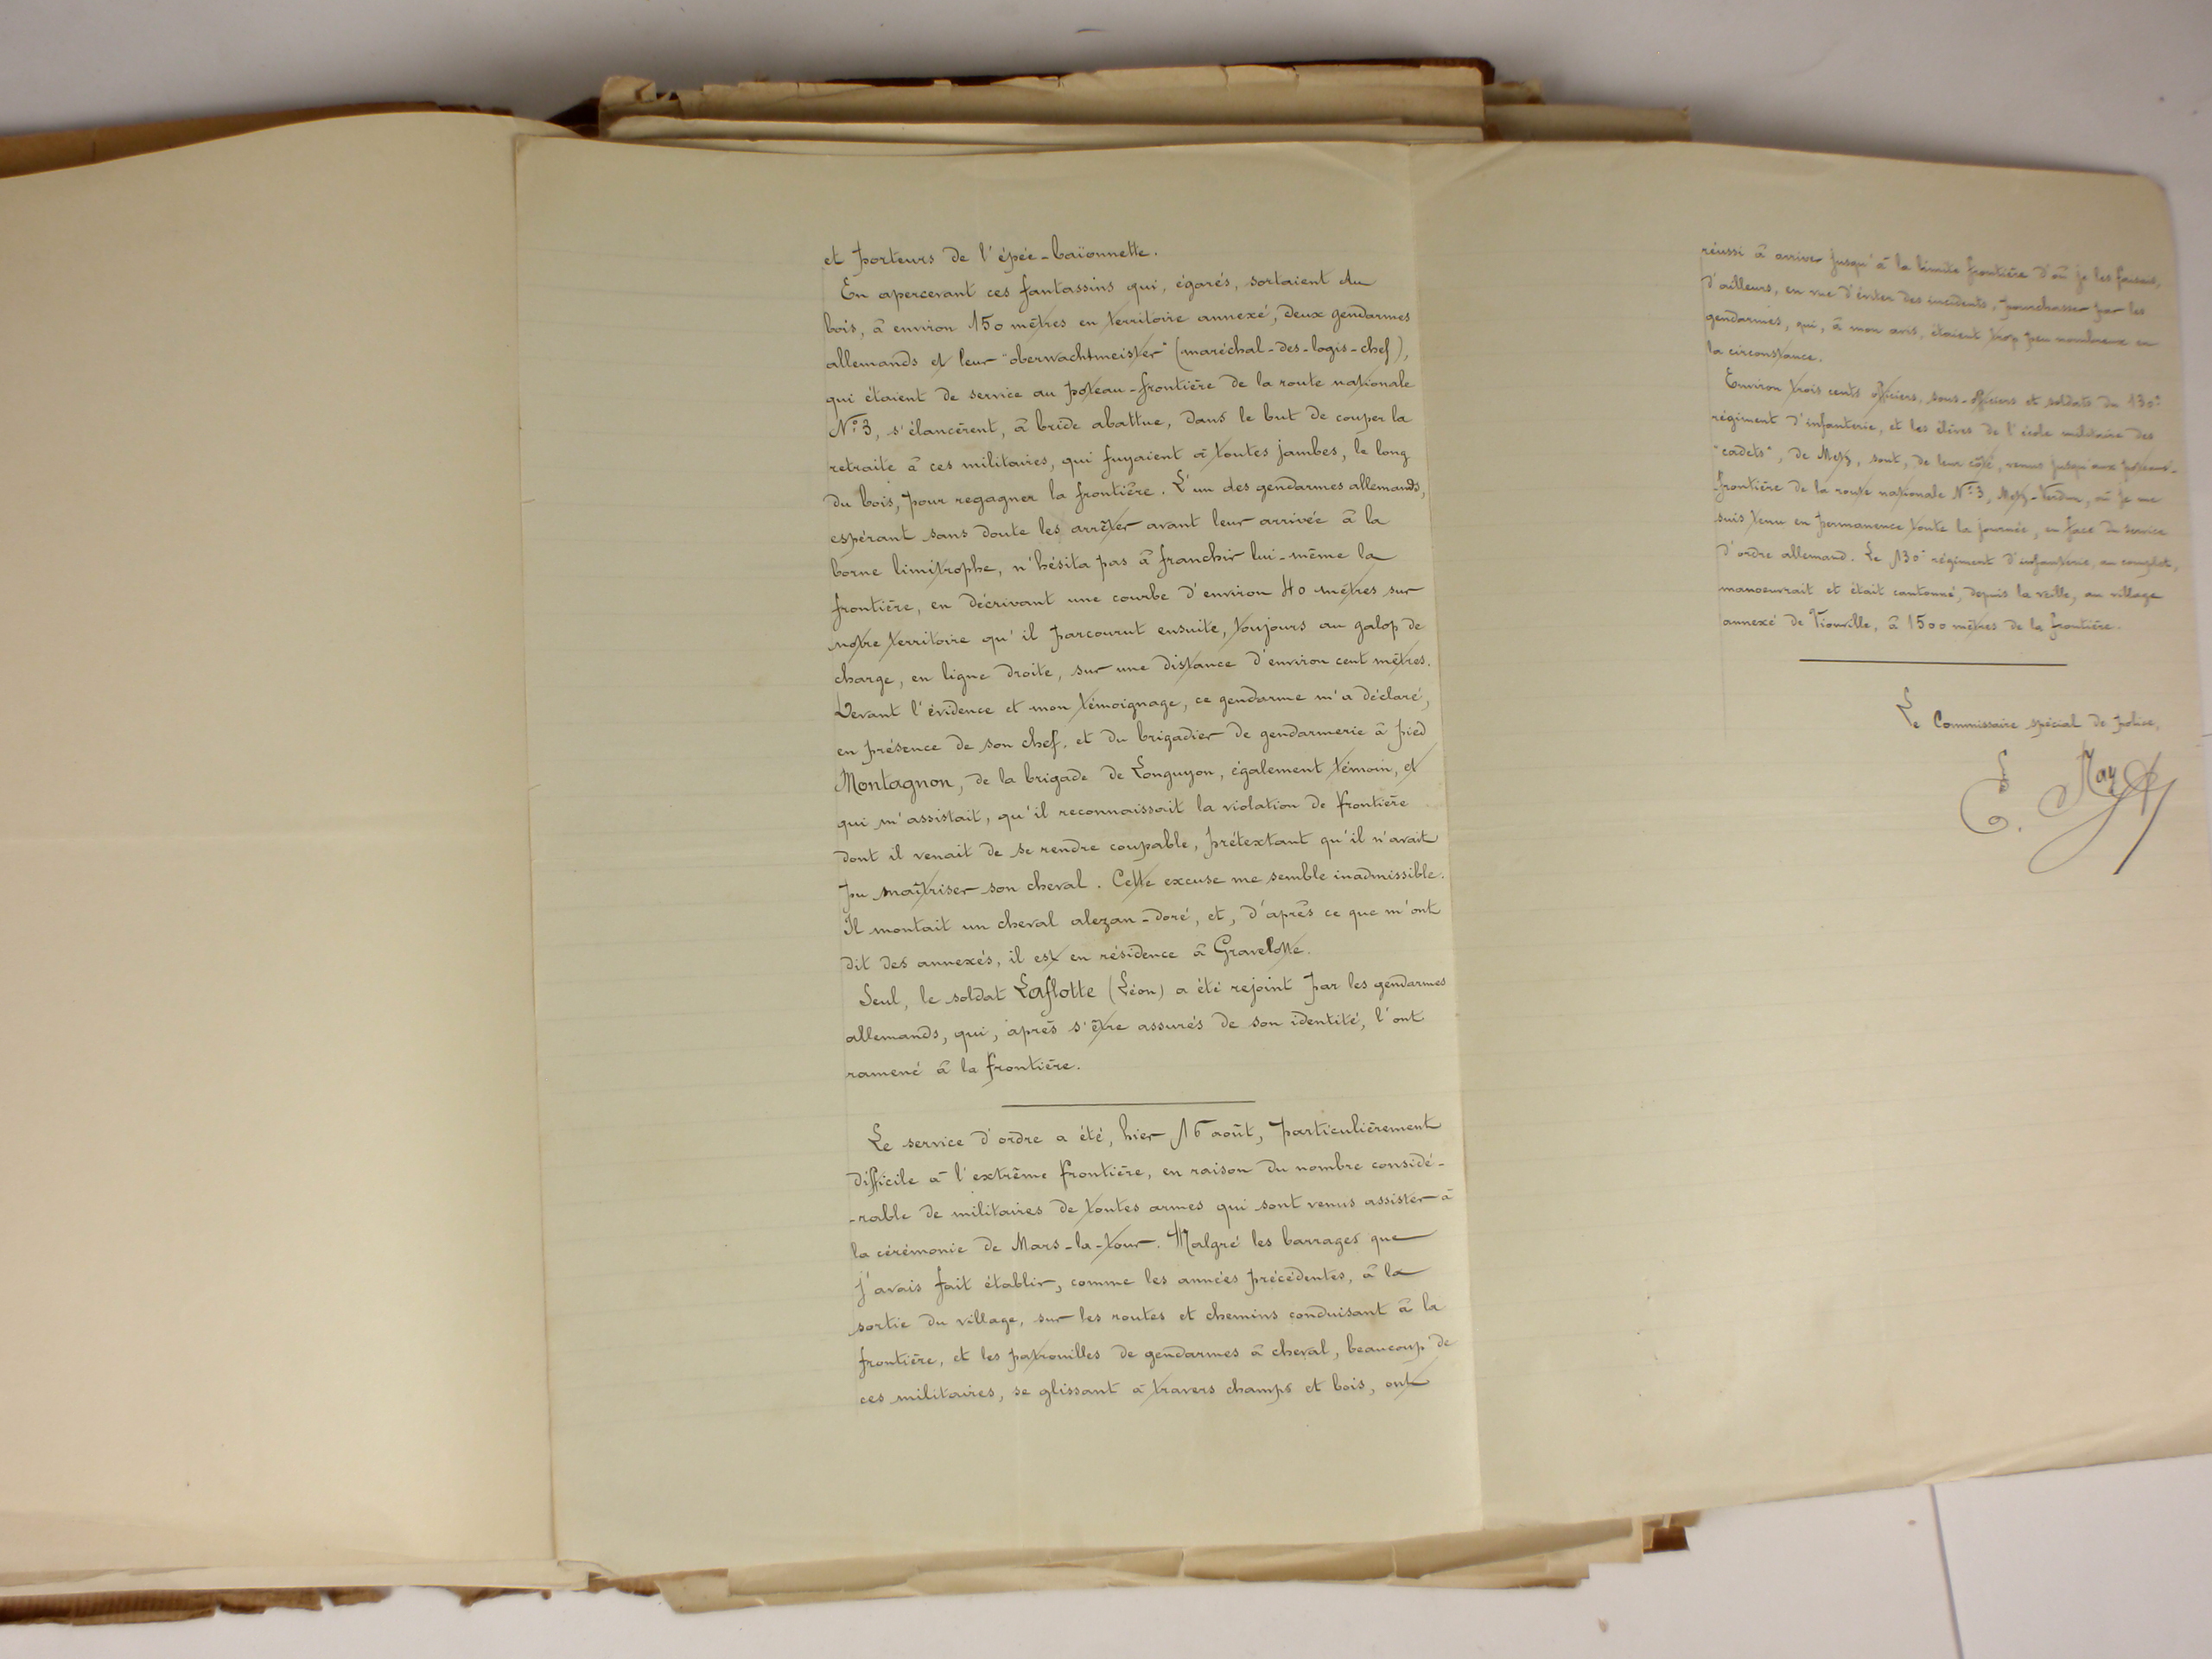 et porteurs de l'épée-baïonnette.
En apercevant ces fantassins qui, égarés, sortaient du
bois, à environ 150 mètres en territoire annexé, deux gendarmes
allemands et leur "oberwachtmeister" (maréchal-des-logis-chef),
qui étaient de service au poteau-frontière de la route nationale
N° 3, s'élancèrent, à bride abattue, dans le but de couper la
retraite à ces militaires, qui fuyaient à toutes jambes, le long
du bois, pour regagner la frontière. L'un des gendarmes allemands,
espérant sans doute les arrêter avant leur arrivée à la
borne limitrophe, n'hésita pas à franchir lui-même la
frontière, en décrivant une courbe d'environ 40 mètres sur
notre territoire qu'il parcourut ensuite, toujours au galop de
charge, en ligne droite, sur une distance d'environ cent mètres.
Devant l'évidence et mon témoignage, ce gendarme m'a déclaré,
en présence de son chef, et du brigadier de gendarmerie à pied
Montagnon, de la brigade de Longuyon, également témoin, et
qui m'assistait, qu'il reconnaissait la violation de frontière
dont il venait de se rendre coupable, prétextant qu'il n'avait
pu maîtriser son cheval. Cette excuse me semble inadmissible.
Il montait un cheval alezan-doré, et, d'après ce que m'ont
dit des annexés, il est en résidence à Gravelotte.
Seul, le soldat Laflotte (Léon) a été rejoint par les gendarmes
allemands, qui, après s'être assurés de son identité, l'ont
ramené à la frontière.
Le service d'ordre a été, hier 16 août, particulièrement
difficile à l'extrême frontière, en raison du nombre considé-
-rable de militaires de toutes armes qui sont venus assister à
la cérémonie de Mars-la-tour. Malgré les barrages que
j'avais fait établir, comme les années précédentes, à la
sortie du village, sur les routes et chemins conduisant à la
frontière, et les patrouilles de gendarmes à cheval, beaucoup de
ces militaires, se glissant à travers champs et bois, ont
réussi à arriver jusqu'à la limite frontière d'où je les faisais,
d'ailleurs, en vue d'éviter des incidents, pourchasser par les
gendarmes, qui, à mon avis, étaient trop peu nombreux en
la circonstance.
Environ trois cents officiers, sous-officiers et soldats du 130e
régiment d'infanterie, et les élèves de l'école militaire des
"cadets", de Metz, sont, de leur côté, venus jusqu'aux poteaux-
frontière de la route nationale N° 3, Metz-Verdun, où je me
suis tenu en permanence toute la journée, en face du service
d'ordre allemand. Le 130e régiment d'infanterie, au complet,
manoeuvrait et était cantonné, depuis la veille, au village
annexé de Vionville, à 1500 mètres de la frontière.
Le Commissaire spécial de police,